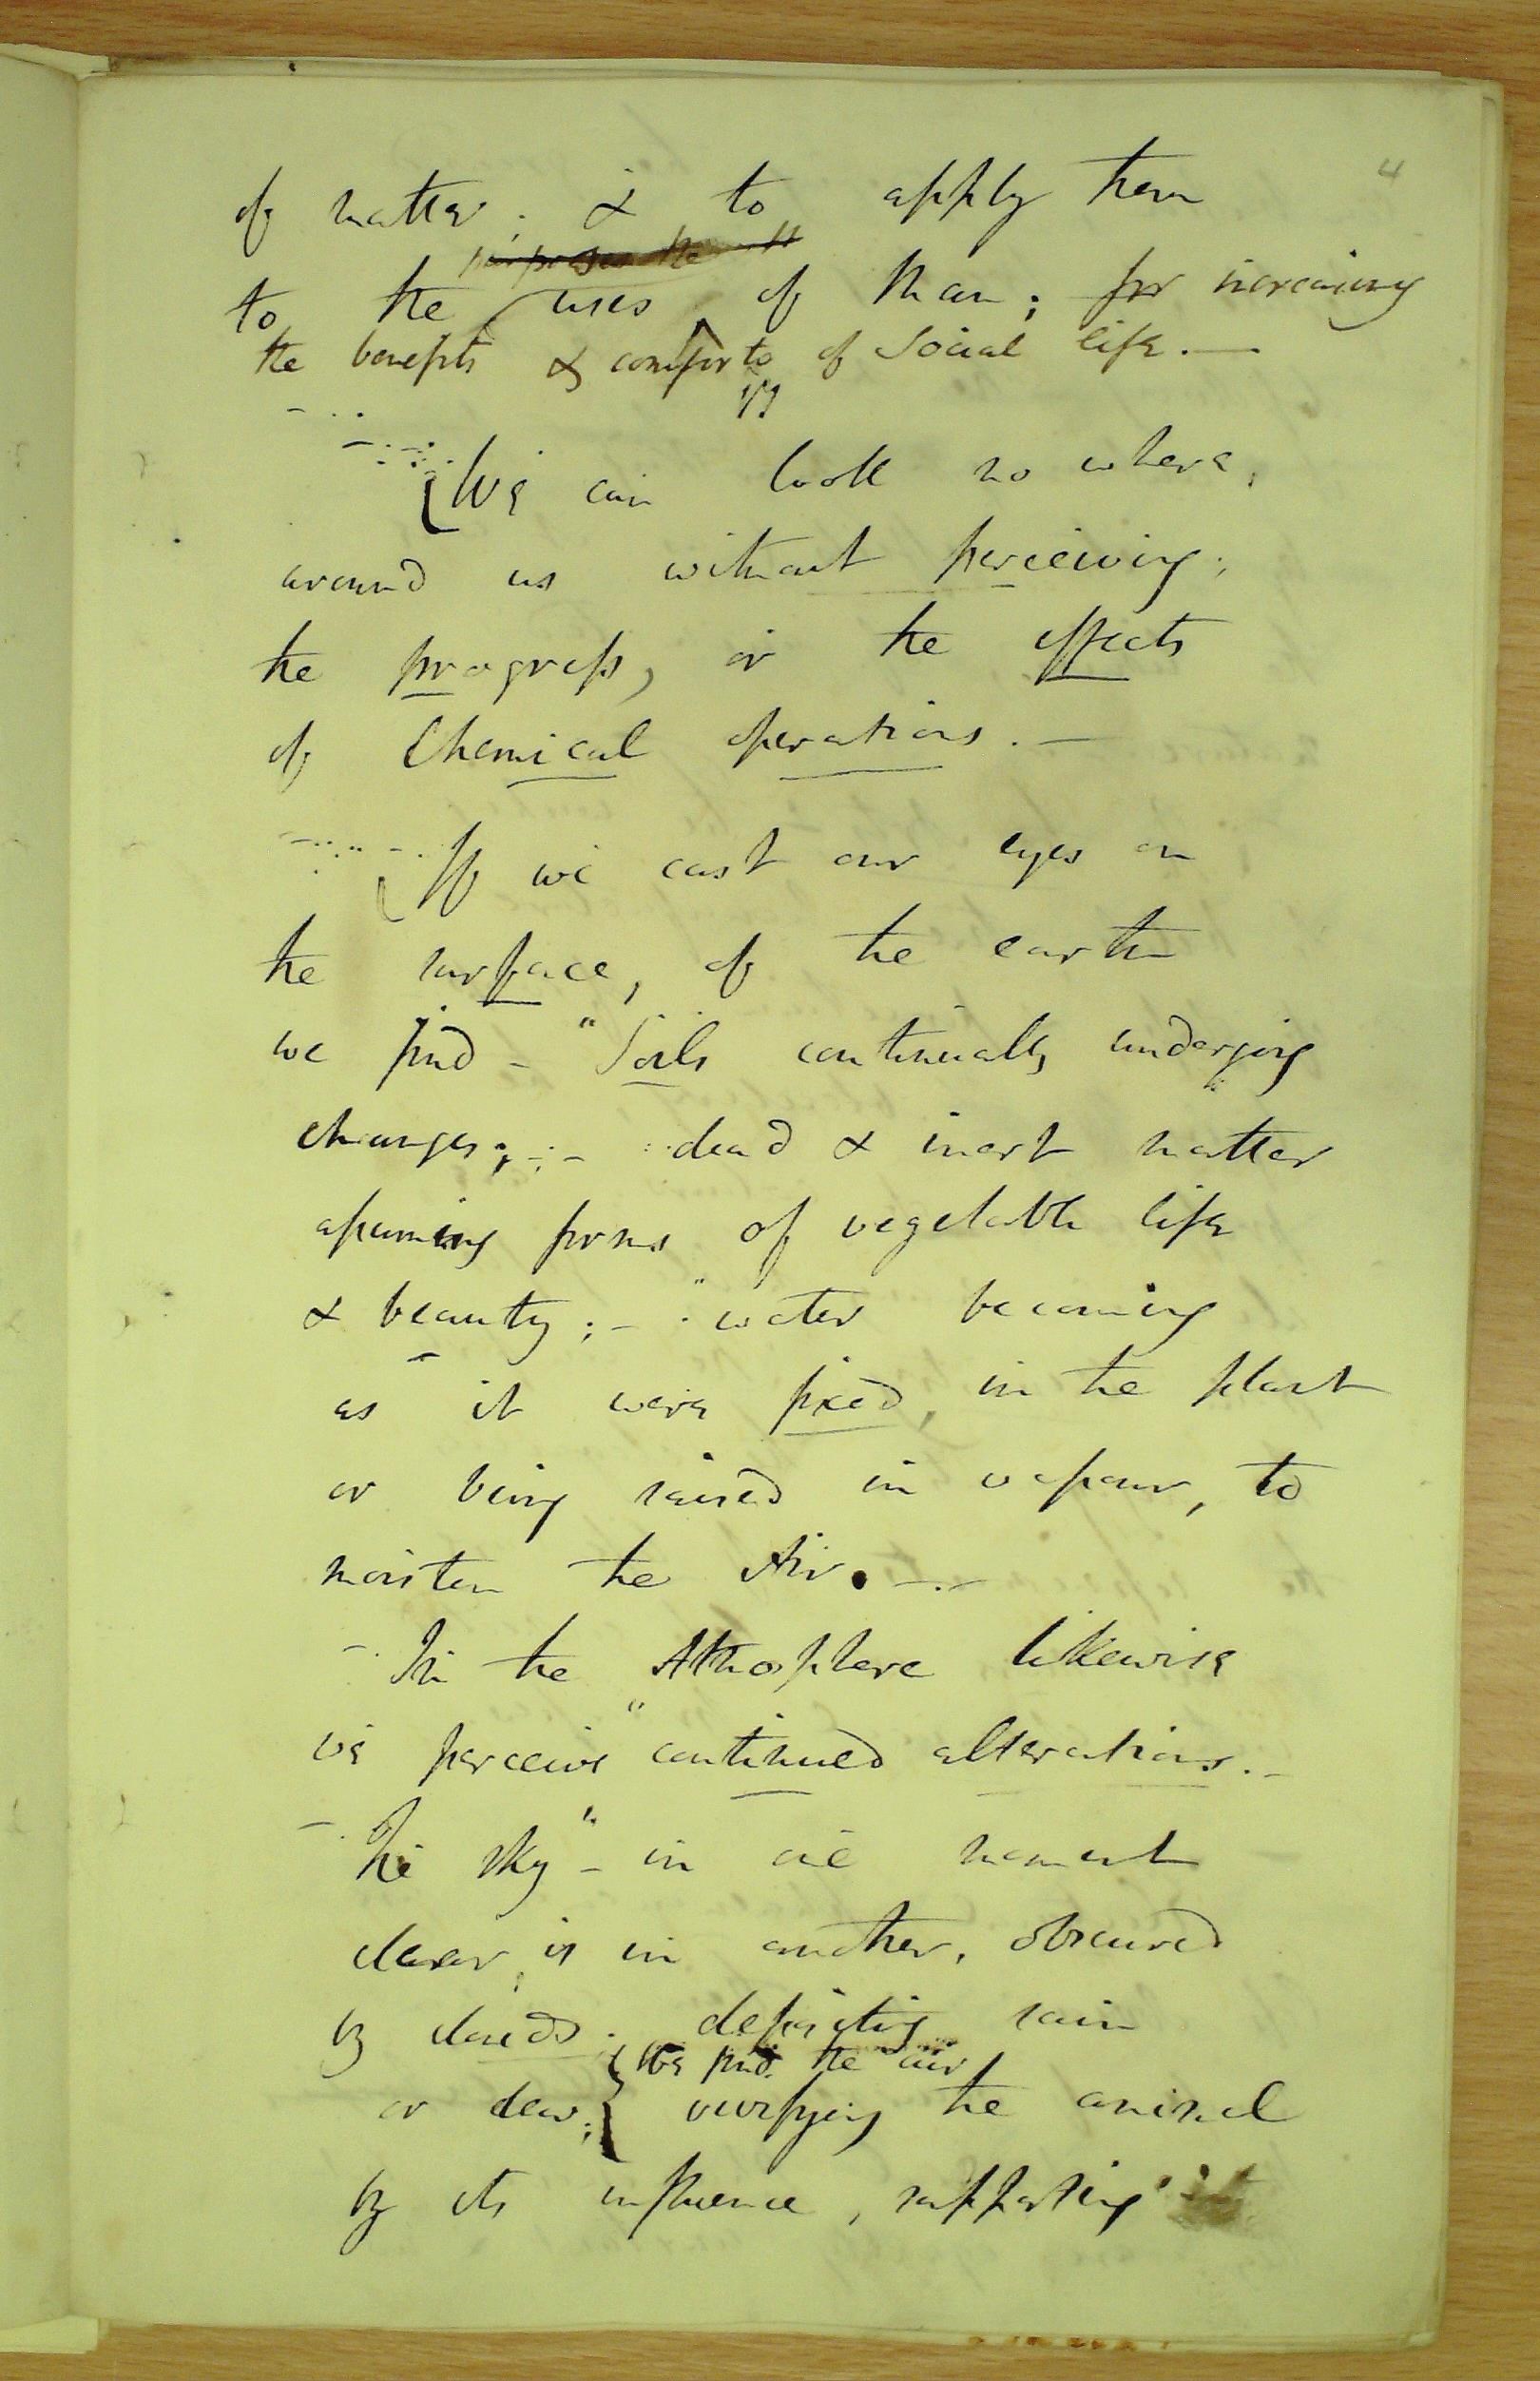 4
of matter. & to apply them
purposes the
to the uses of Man; for increasing
the benefits & comforts of Social life. —
We can look no where,
around us without perceiving;
the progress, or the effects
of Chemical operations. —
If we cast our eyes on
the surface, of the earth
we find - "Soils continually undergoing
changes; - dead & inert matter
assuming forms of vegetable life
& beauty; - "water becoming
as it were fixed, in the plant
or being raised in vapour, to
moisten the Air. —
- In the Atmosphere likewise
we perceive "continued alterations. -
- The sky" - in one moment
clear, is in another, obscured
by clouds. depositing rain
We find the air
or dew; vivifying the animal
by its influence, supporting